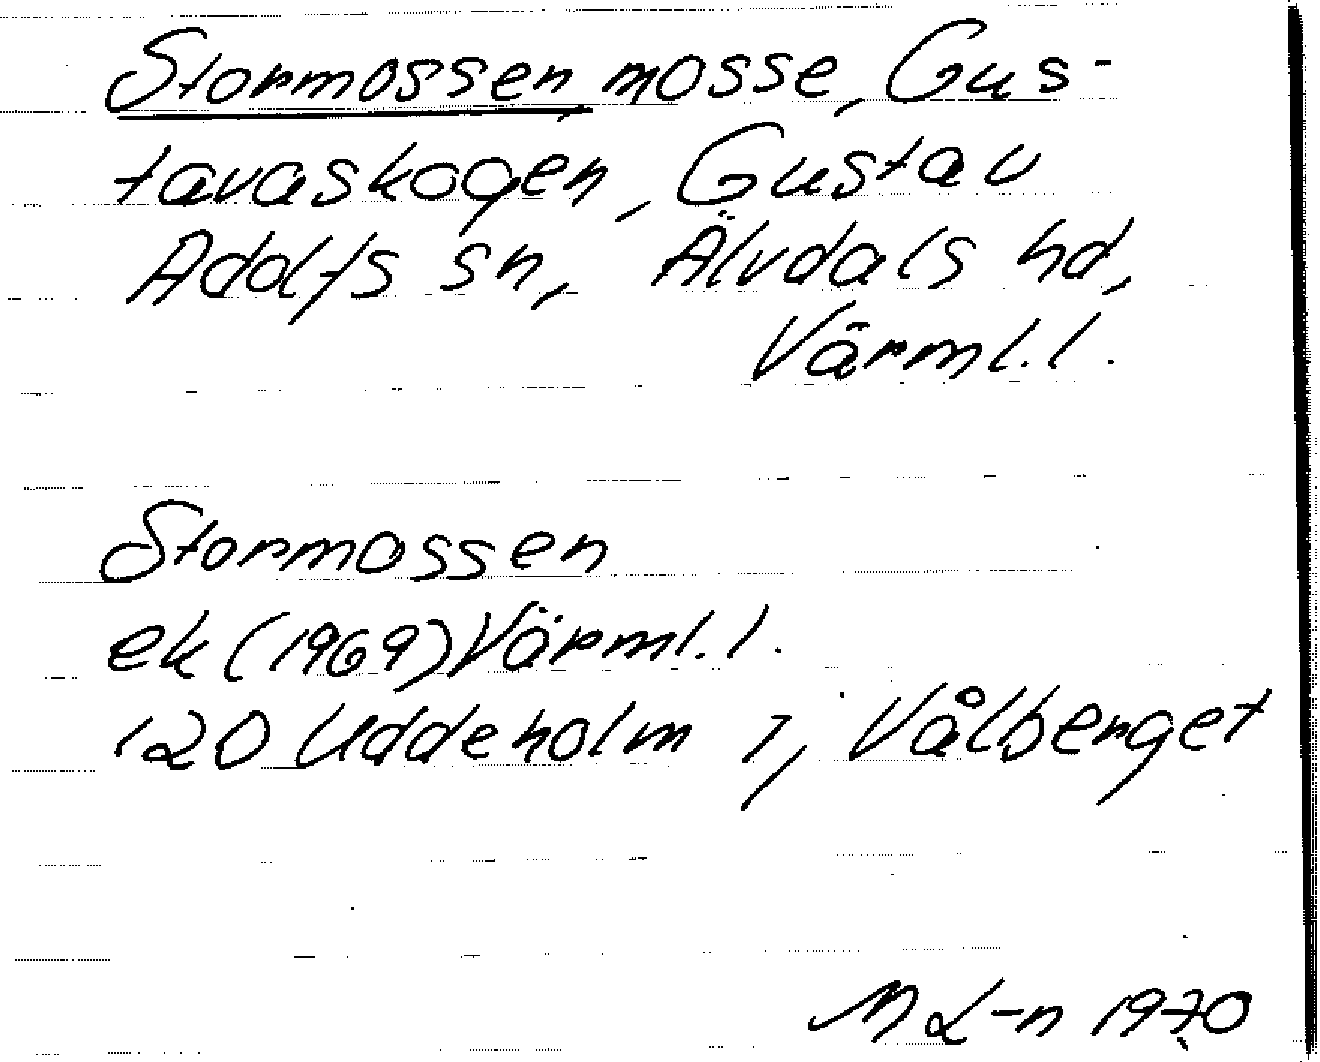 Stormossen, mosse, Gus-
tavaskogen, Gustav
Adolfs sn, Älvdals hd,
Värml.l.
Stormossen
ek (1969) Värml.l.
120 Uddeholm 7, Vålberget
M L-n 1970